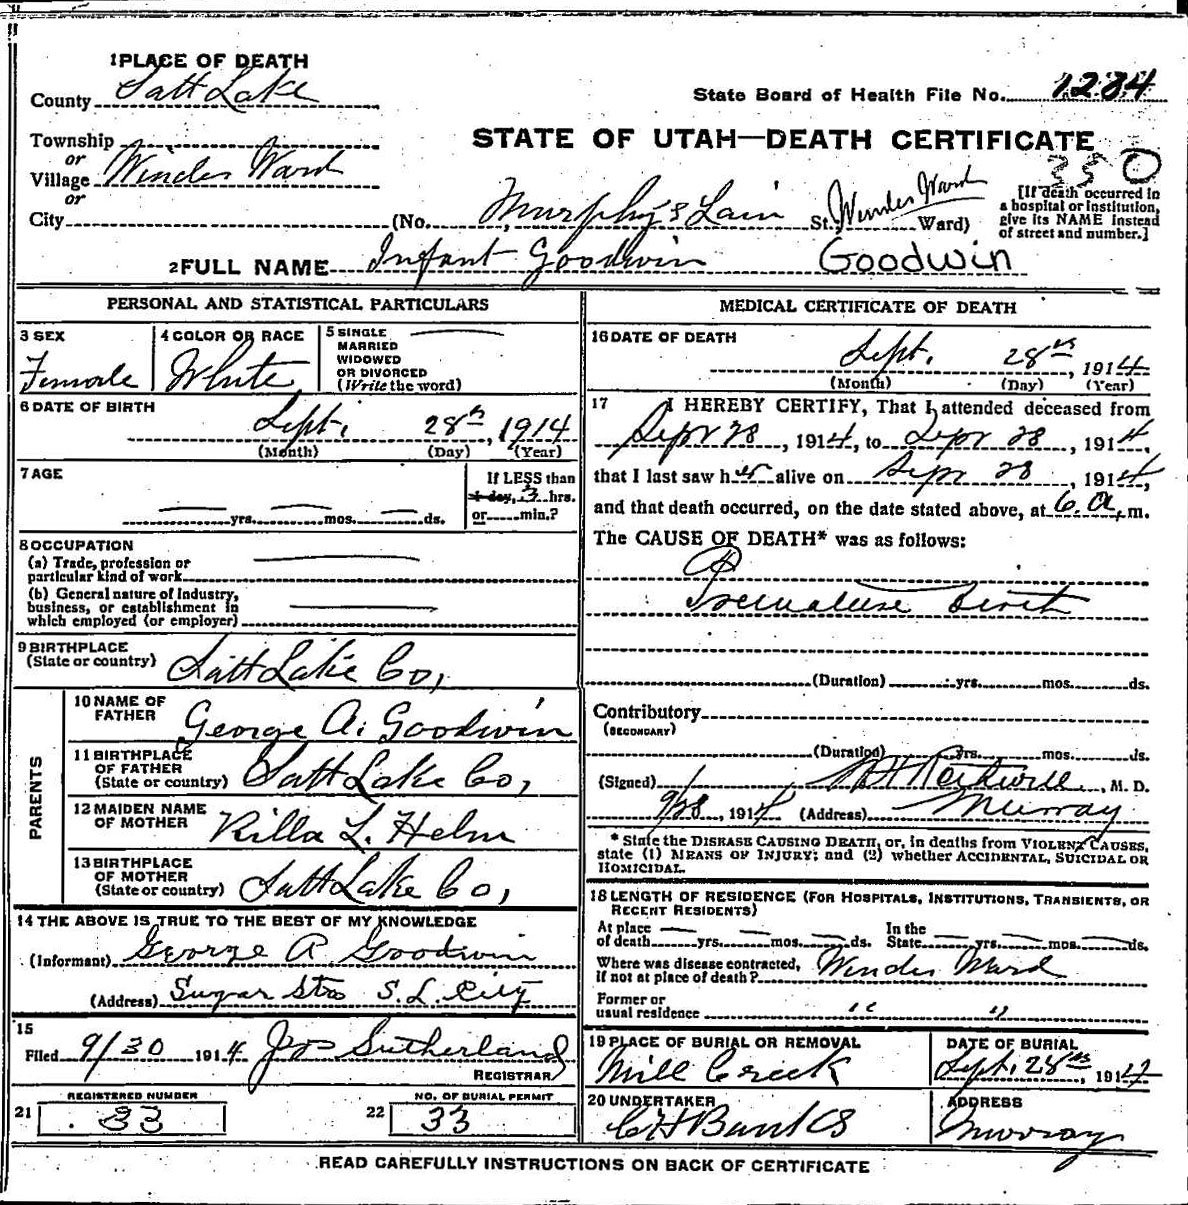 1 PLACE OF DEATH
County Salt Lake
State Board of Health File No. 1284
STATE OF UTAH—DEATH CERTIFICATE
Township
or
Village Winder Ward
or
City (No. Murphy's Lain St. Winder Ward Ward)
350
[If death occurred in
a hospital or institution,
give its NAME instead
of street and number.]
2 FULL NAME Infant Goodwin Goodwin
PERSONAL AND STATISTICAL PARTICULARS
3 SEX
Female
4 COLOR OR RACE
White
5 SINGLE
MARRIED
WIDOWED
OR DIVORCED
(Write the word)
6 DATE OF BIRTH
Sept. 28th, 1914
(Month) (Day) (Year)
7 AGE
yrs. mos. ds.
If LESS than
1 day, 3 hrs.
or min.?
8 OCCUPATION
(a) Trade, profession or
particular kind of work
(b) General nature of industry,
business, or establishment in
which employed (or employer)
9 BIRTHPLACE
(State or country) Salt Lake Co,
PARENTS
10 NAME OF
FATHER George A. Goodwin
11 BIRTHPLACE
OF FATHER
(State or country) Salt Lake Co,
12 MAIDEN NAME
OF MOTHER Rilla L. Helm
13 BIRTHPLACE
OF MOTHER
(State or country) Salt Lake Co,
14 THE ABOVE IS TRUE TO THE BEST OF MY KNOWLEDGE
(Informant) George A. Goodwin
(Address) Sugar Sta S. L. City
15
Filed 9/30 1914 Jos Sutherland
REGISTRAR
REGISTERED NUMBER
21 33
NO. OF BURIAL PERMIT
22 33
MEDICAL CERTIFICATE OF DEATH
16 DATE OF DEATH
Sept. 28th, 1914
(Month) (Day) (Year)
17 I HEREBY CERTIFY, That I attended deceased from
Sept 28, 1914, to Sept 28, 1914,
that I last saw her alive on Sept 28, 1914,
and that death occurred, on the date stated above, at 6 a.m.
The CAUSE OF DEATH* was as follows:
Premature Birth
(Duration) yrs. mos. ds.
Contributory
(SECONDARY)
(Duration) yrs. mos. ds.
(Signed) M. D.
9/28, 1914 (Address) Murray
* State the DISEASE CAUSING DEATH, or, in deaths from VIOLENT CAUSES,
state (1) MEANS OF INJURY; and (2) whether ACCIDENTAL, SUICIDAL OR
HOMICIDAL.
18 LENGTH OF RESIDENCE (FOR HOSPITALS, INSTITUTIONS, TRANSIENTS, OR
RECENT RESIDENTS)
At place In the
of death yrs. mos. ds. State yrs. mos. ds.
Where was disease contracted,
if not at place of death? Winder Ward
Former or
usual residence " "
19 PLACE OF BURIAL OR REMOVAL
Mill Creek
DATE OF BURIAL
Sept. 28th, 1914
20 UNDERTAKER
C H Banks
ADDRESS
Murray
READ CAREFULLY INSTRUCTIONS ON BACK OF CERTIFICATE